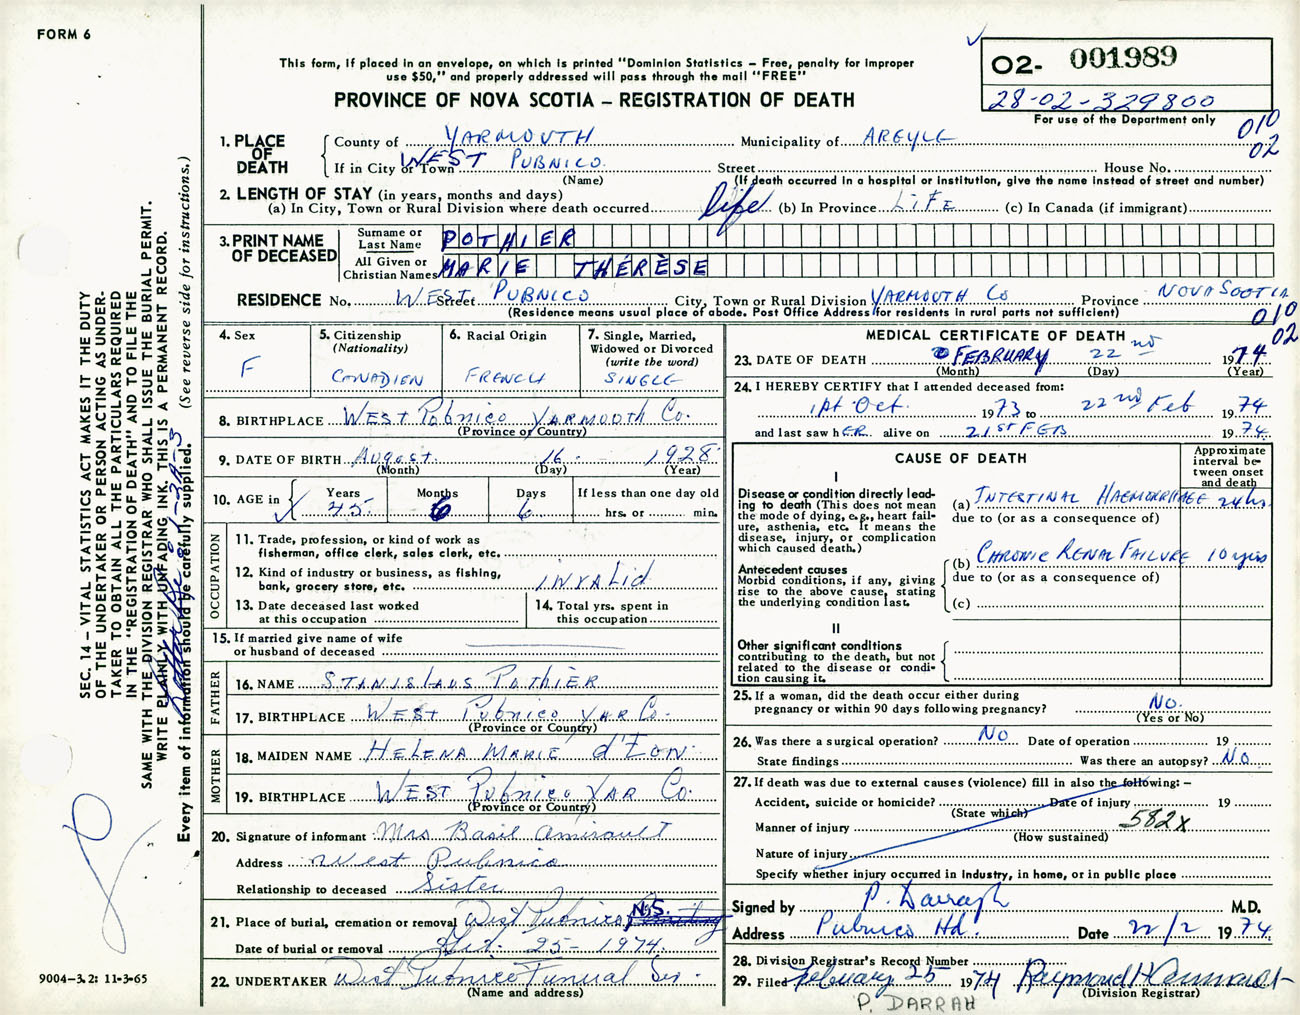 FORM 6
This form, if placed in an envelope, on which is printed "Dominion Statistics – Free, penalty for improper
use $50," and properly addressed will pass through the mail "FREE"
PROVINCE OF NOVA SCOTIA – REGISTRATION OF DEATH
02- 001989
28-02-329800
For use of the Department only
010
02
1. PLACE OF DEATH
County of YARMOUTH Municipality of ARGYLE
If in City or Town WEST PUBNICO Street House No.
(Name) (If death occurred in a hospital or institution, give the name instead of street and number)
2. LENGTH OF STAY (in years, months and days)
(a) In City, Town or Rural Division where death occurred life (b) In Province LIFE (c) In Canada (if immigrant)
3. PRINT NAME OF DECEASED
Surname or Last Name POTHIER
All Given or Christian Names MARIE THÉRÈSE
RESIDENCE No. WEST Street PUBNICO City, Town or Rural Division YARMOUTH Co Province NOVA SCOTIA
(Residence means usual place of abode. Post Office Address for residents in rural parts not sufficient)
010
02
4. Sex
F
5. Citizenship
(Nationality)
CANADIEN
6. Racial Origin
FRENCH
7. Single, Married,
Widowed or Divorced
(write the word)
SINGLE
8. BIRTHPLACE WEST PUBNICO YARMOUTH Co.
(Province or Country)
9. DATE OF BIRTH August 16 1928
(Month) (Day) (Year)
10. AGE in
Years Months Days If less than one day old
45 6 6 hrs. or min.
OCCUPATION
11. Trade, profession, or kind of work as
fisherman, office clerk, sales clerk, etc.
12. Kind of industry or business, as fishing,
bank, grocery store, etc. INVALID
13. Date deceased last worked
at this occupation
14. Total yrs. spent in
this occupation
15. If married give name of wife
or husband of deceased
FATHER
16. NAME STANISLAUS POTHIER
17. BIRTHPLACE WEST PUBNICO YAR Co.
(Province or Country)
MOTHER
18. MAIDEN NAME HELENA MARIE d'EON
19. BIRTHPLACE WEST PUBNICO YAR Co.
(Province or Country)
20. Signature of informant Mrs Basil Amirault
Address West Pubnico
Relationship to deceased Sister
21. Place of burial, cremation or removal West Pubnico, N.S.
Date of burial or removal 25- 1974
22. UNDERTAKER West Pubnico Funual Ser
(Name and address)
MEDICAL CERTIFICATE OF DEATH
23. DATE OF DEATH FEBRUARY 22nd 1974
(Month) (Day) (Year)
24. I HEREBY CERTIFY that I attended deceased from:
1st Oct. 1973 to 22nd Feb 1974
and last saw hER alive on 21ST FEB 1974
CAUSE OF DEATH
Approximate
interval be-
tween onset
and death
I
Disease or condition directly lead-
ing to death (This does not mean
the mode of dying, e.g., heart fail-
ure, asthenia, etc. It means the
disease, injury, or complication
which caused death.)
(a) INTESTINAL HAEMORRHAGE 24 hrs
due to (or as a consequence of)
Antecedent causes
Morbid conditions, if any, giving
rise to the above cause, stating
the underlying condition last.
(b) CHRONIC RENAL FAILURE 10 yrs
due to (or as a consequence of)
(c)
II
Other significant conditions
contributing to the death, but not
related to the disease or condi-
tion causing it.
25. If a woman, did the death occur either during
pregnancy or within 90 days following pregnancy? No.
(Yes or No)
26. Was there a surgical operation? NO Date of operation 19
State findings Was there an autopsy? NO
27. If death was due to external causes (violence) fill in also the following: –
Accident, suicide or homicide? Date of injury 19
(State which)
Manner of injury 582X
(How sustained)
Nature of injury
Specify whether injury occurred in industry, in home, or in public place
Signed by P. Darragh M.D.
Address Pubnico Hd. Date 22/2 1974
28. Division Registrar's Record Number
29. Filed February 25 1974 Raymond H
(Division Registrar)
P. DARRAH
SEC. 14 – VITAL STATISTICS ACT MAKES IT THE DUTY
OF THE UNDERTAKER OR PERSON ACTING AS UNDER-
TAKER TO OBTAIN ALL THE PARTICULARS REQUIRED
IN THE "REGISTRATION OF DEATH" AND TO FILE THE
SAME WITH THE DIVISION REGISTRAR WHO SHALL ISSUE THE BURIAL PERMIT.
WRITE PLAINLY WITH UNFADING INK. THIS IS A PERMANENT RECORD.
Every item of information should be carefully supplied. (See reverse side for instructions.)
9004–3.2: 11-3-65